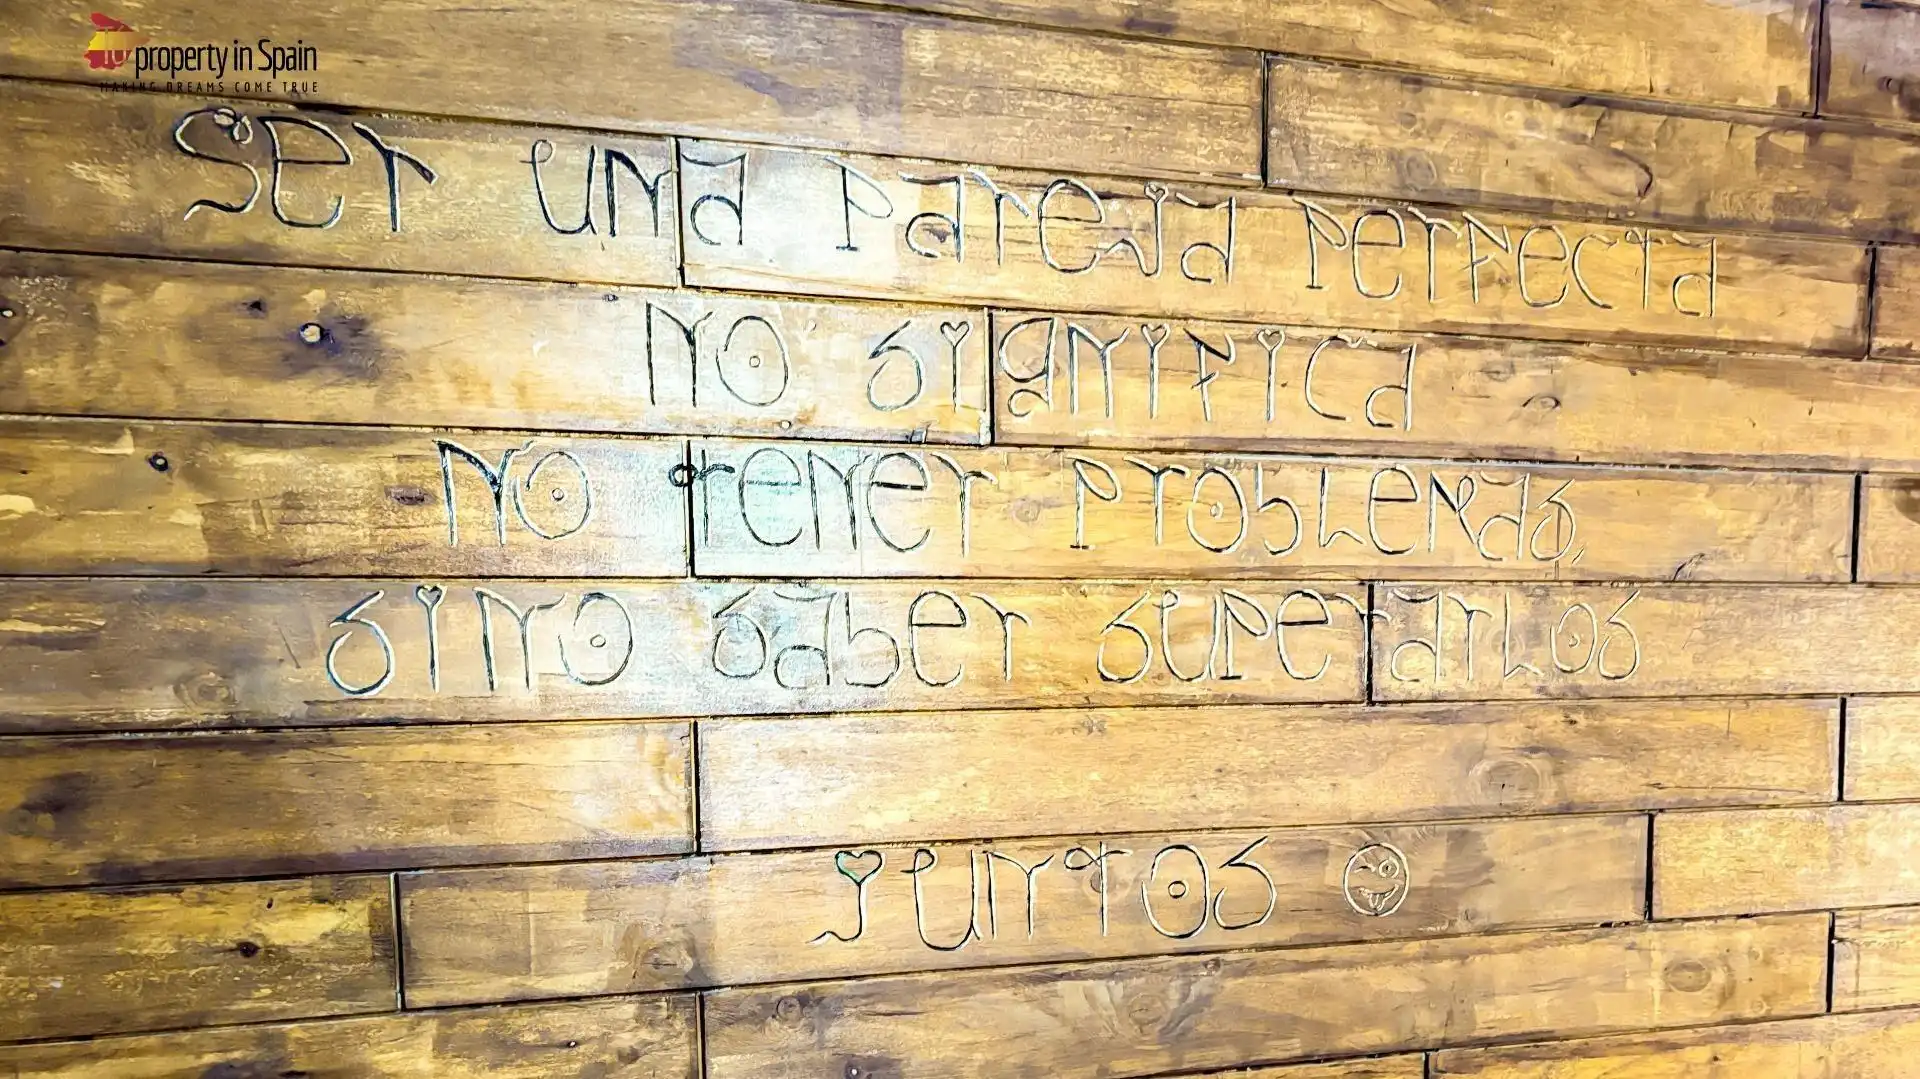 TU property in Spain
MAKING DREAMS COME TRUE
Ser una pareja perfecta
no significa
no tener problemas,
sino saber superarlos
juntos